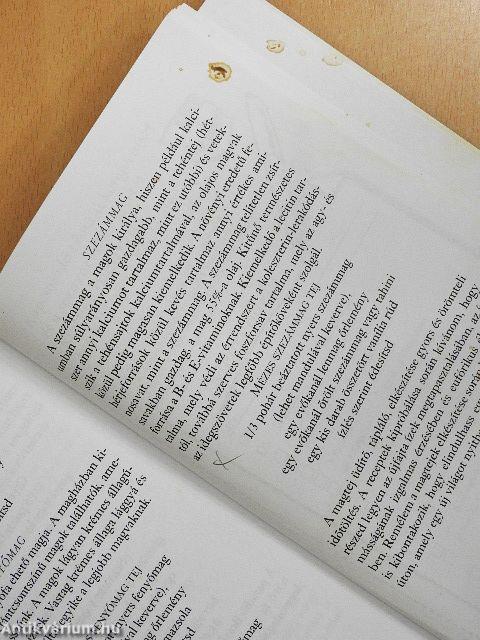 SZEZÁMMAG
A szezámmag a magok királya, hiszen például kalci-
umban súlyarányosan gazdagabb, mint a tehéntej (hét-
szer annyi kalciumot tartalmaz, mint ez utóbbi) és vetek-
szik a tehénsajtok kalciumtartalmával, az olajos magvak
közül pedig magasan kiemelkedik. A növényi eredetű fe-
hérjeforrások közül kevés tartalmaz annyi értékes ami-
nosavat, mint a szezámmag. A szezámmag telítetlen zsír-
savakban gazdag, a mag 55%-a olaj. Kitűnő természetes
forrása a B- és E-vitaminoknak. Kiemelkedő a lecitin tar-
talma, mely védi az érrendszert a koleszterin-lerakódás-
tól, továbbá szerves foszforsav tartalma, mely az agy- és
az idegszövetek legfőbb építőköveként szolgál.
MÉZES SZEZÁMMAG TEJ
1/3 pohár beáztatott nyers szezámmag
(lehet mandulával keverve),
egy evőkanál lenmag őrlemény
egy evőkanál őrölt szezámmag vagy tahini
egy kis darab összetört vanília rúd
ízlés szerint édesítsd
A magtej üdítő, tápláló, elkészítése gyors és örömteli
időtöltés. A receptek kipróbálása során kívánom, hogy
részed legyen az újfajta ízek megtapasztalásában, az
másságának izgalmas érzésében és eufórikus él
ben. Remélem a magtejek elkészítése során
is kibontakozik, hogy elindulhass en
úton, amely egy új világot nyith
ítsd
ŐMAG
ofa ehető magja. A magházban ki-
ntcsontszínű magok találhatók, ame-
nek. A magok lágyan krémes állagú-
k. Vastag krémes állaga lággyá és
nyike a legjobb magvaknak
NYŐMAG TEJ
ers fenyőmag
al keverve),
ag őrlemény
mazsola
mag
Antikvárium.hu